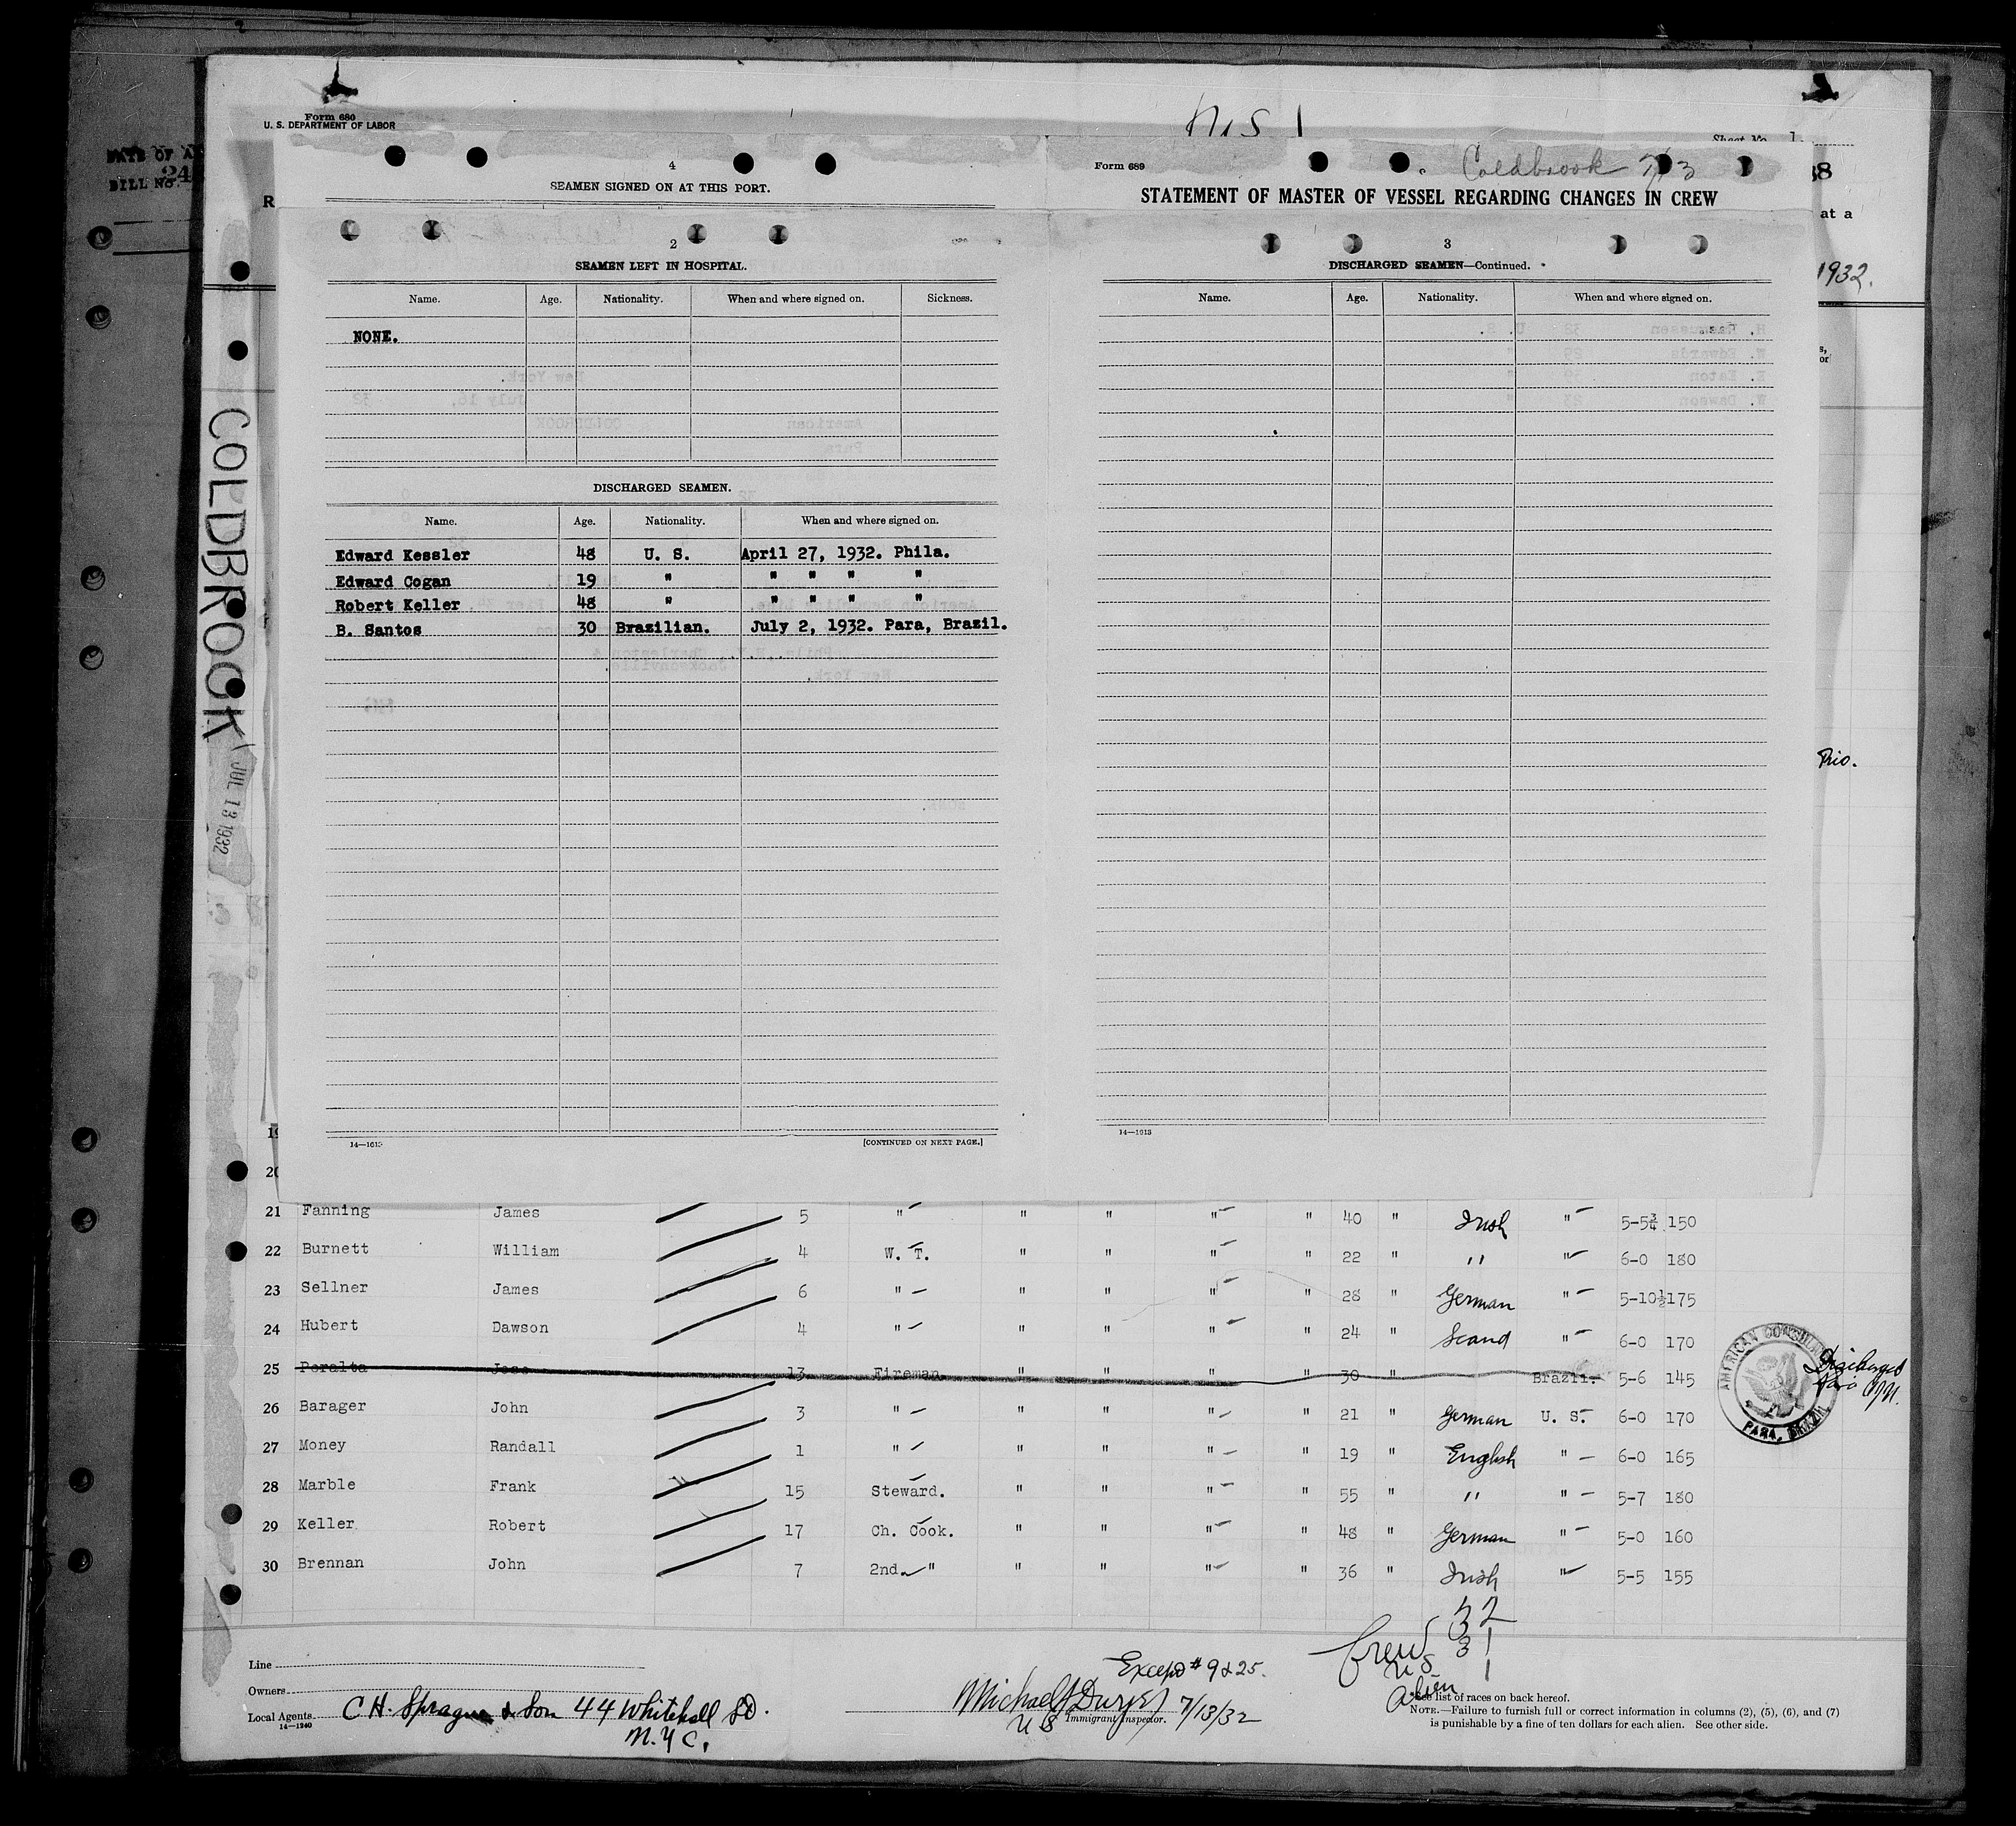 Form 680
U. S. DEPARTMENT OF LABOR
DATE OF A
BILL No. 24
Sheet No. 1
R
4
SEAMEN SIGNED ON AT THIS PORT.
Form 689
Coldbrook
STATEMENT OF MASTER OF VESSEL REGARDING CHANGES IN CREW
at a
1932.
2
SEAMEN LEFT IN HOSPITAL.
Name. Age. Nationality. When and where signed on. Sickness.
NONE.
DISCHARGED SEAMEN.
Name. Age. Nationality. When and where signed on.
Edward Kessler 48 U. S. April 27, 1932. Phila.
Edward Cogan 19 " " " " "
Robert Keller 48 " " " " "
B. Santos 30 Brazilian. July 2, 1932. Para, Brazil.
14—1613
[CONTINUED ON NEXT PAGE.]
3
DISCHARGED SEAMEN—Continued.
Name. Age. Nationality. When and where signed on.
14—1613
COLDBROOK
JUL 13 1932
19
20
21 Fanning James 5 " " " " " 40 " Irish " 5-5¾ 150
22 Burnett William 4 W. T. " " " " 22 " " " 6-0 180
23 Sellner James 6 " " " " " 28 " German " 5-10½ 175
24 Hubert Dawson 4 " " " " " 24 " Scand " 6-0 170
25 Peralta Jose 13 Fireman " " " " 30 " Brazil. 5-6 145
26 Barager John 3 " " " " " 21 " German U. S. 6-0 170
27 Money Randall 1 " " " " " 19 " English " 6-0 165
28 Marble Frank 15 Steward. " " " " 55 " " " 5-7 180
29 Keller Robert 17 Ch. Cook. " " " " 48 " German " 5-0 160
30 Brennan John 7 2nd " " " " " 36 " Irish " 5-5 155
AMERICAN CONSULATE
PARA, BRAZIL
Discharged
Crew 32
US 31
Alien 1
Except # 9 & 25.
Line
Owners
Local Agents C H. Sprague & Son 44 Whitehall St.
N. Y C.
14—1240
7/13/32
U S Immigrant Inspector.
See list of races on back hereof.
NOTE.—Failure to furnish full or correct information in columns (2), (5), (6), and (7)
is punishable by a fine of ten dollars for each alien. See other side.